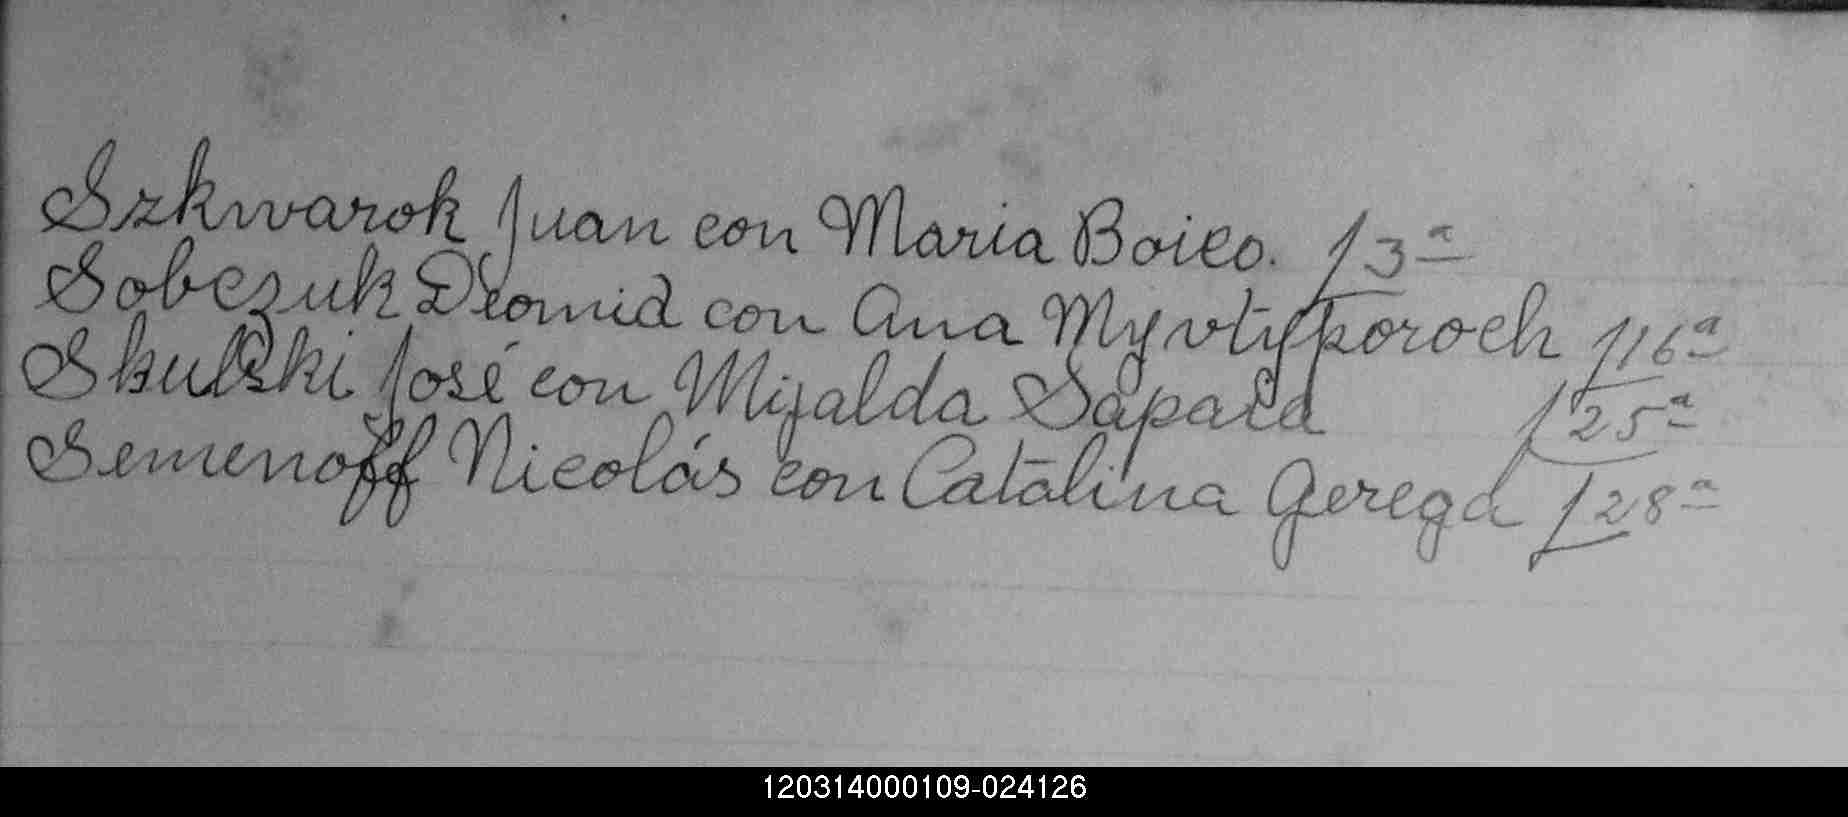 Szkwarok Juan con Maria Boico. f 3ª
Sobczuk Diomid con Ana Myrtykoroch f 16ª
Skulski José con Mijalda Sapala f 25ª
Semenoff Nicolás con Catalina Gerega f 28ª
120314000109-024126